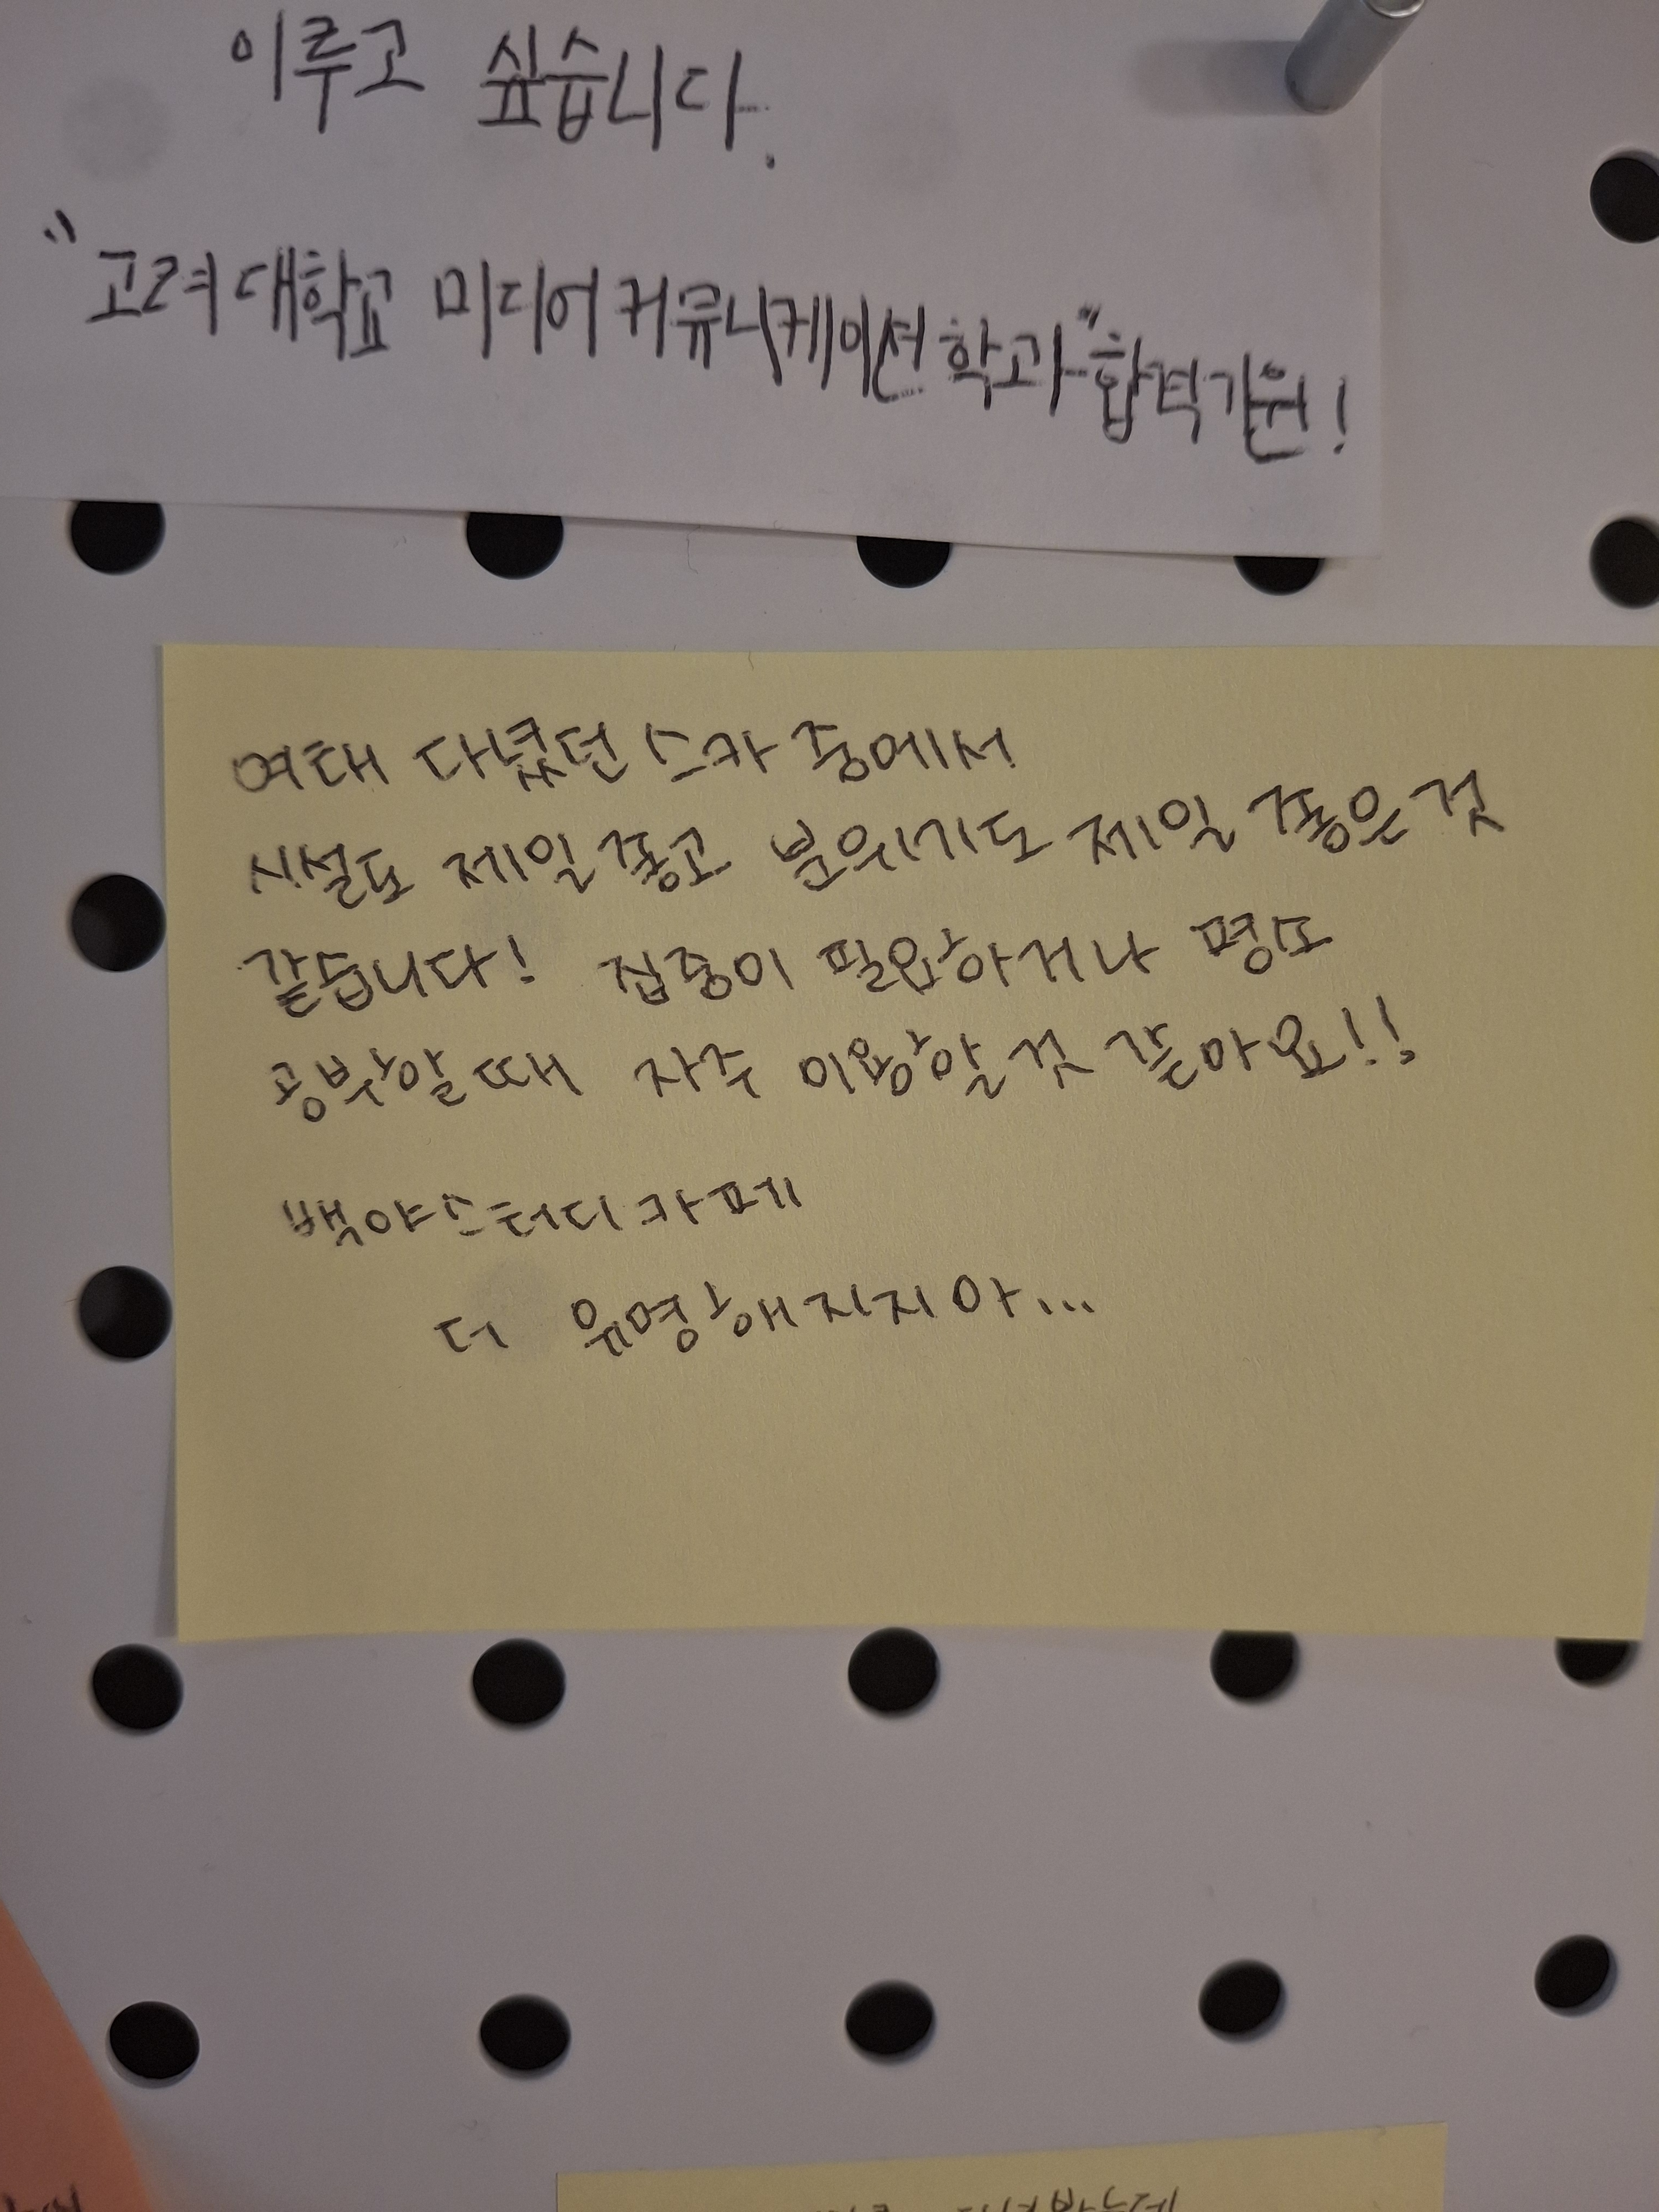 이루고 싶습니다.
"고려대학교 미디어커뮤니케이션학과" 합격기원!
여태 다녔던 스카 중에서
시설도 제일 좋고 분위기도 제일 좋은 것
같습니다! 집중이 필요하거나 평소
공부할 때 자주 이용할 것 같아요!!
백야스터디카페
더 유명해지지마...